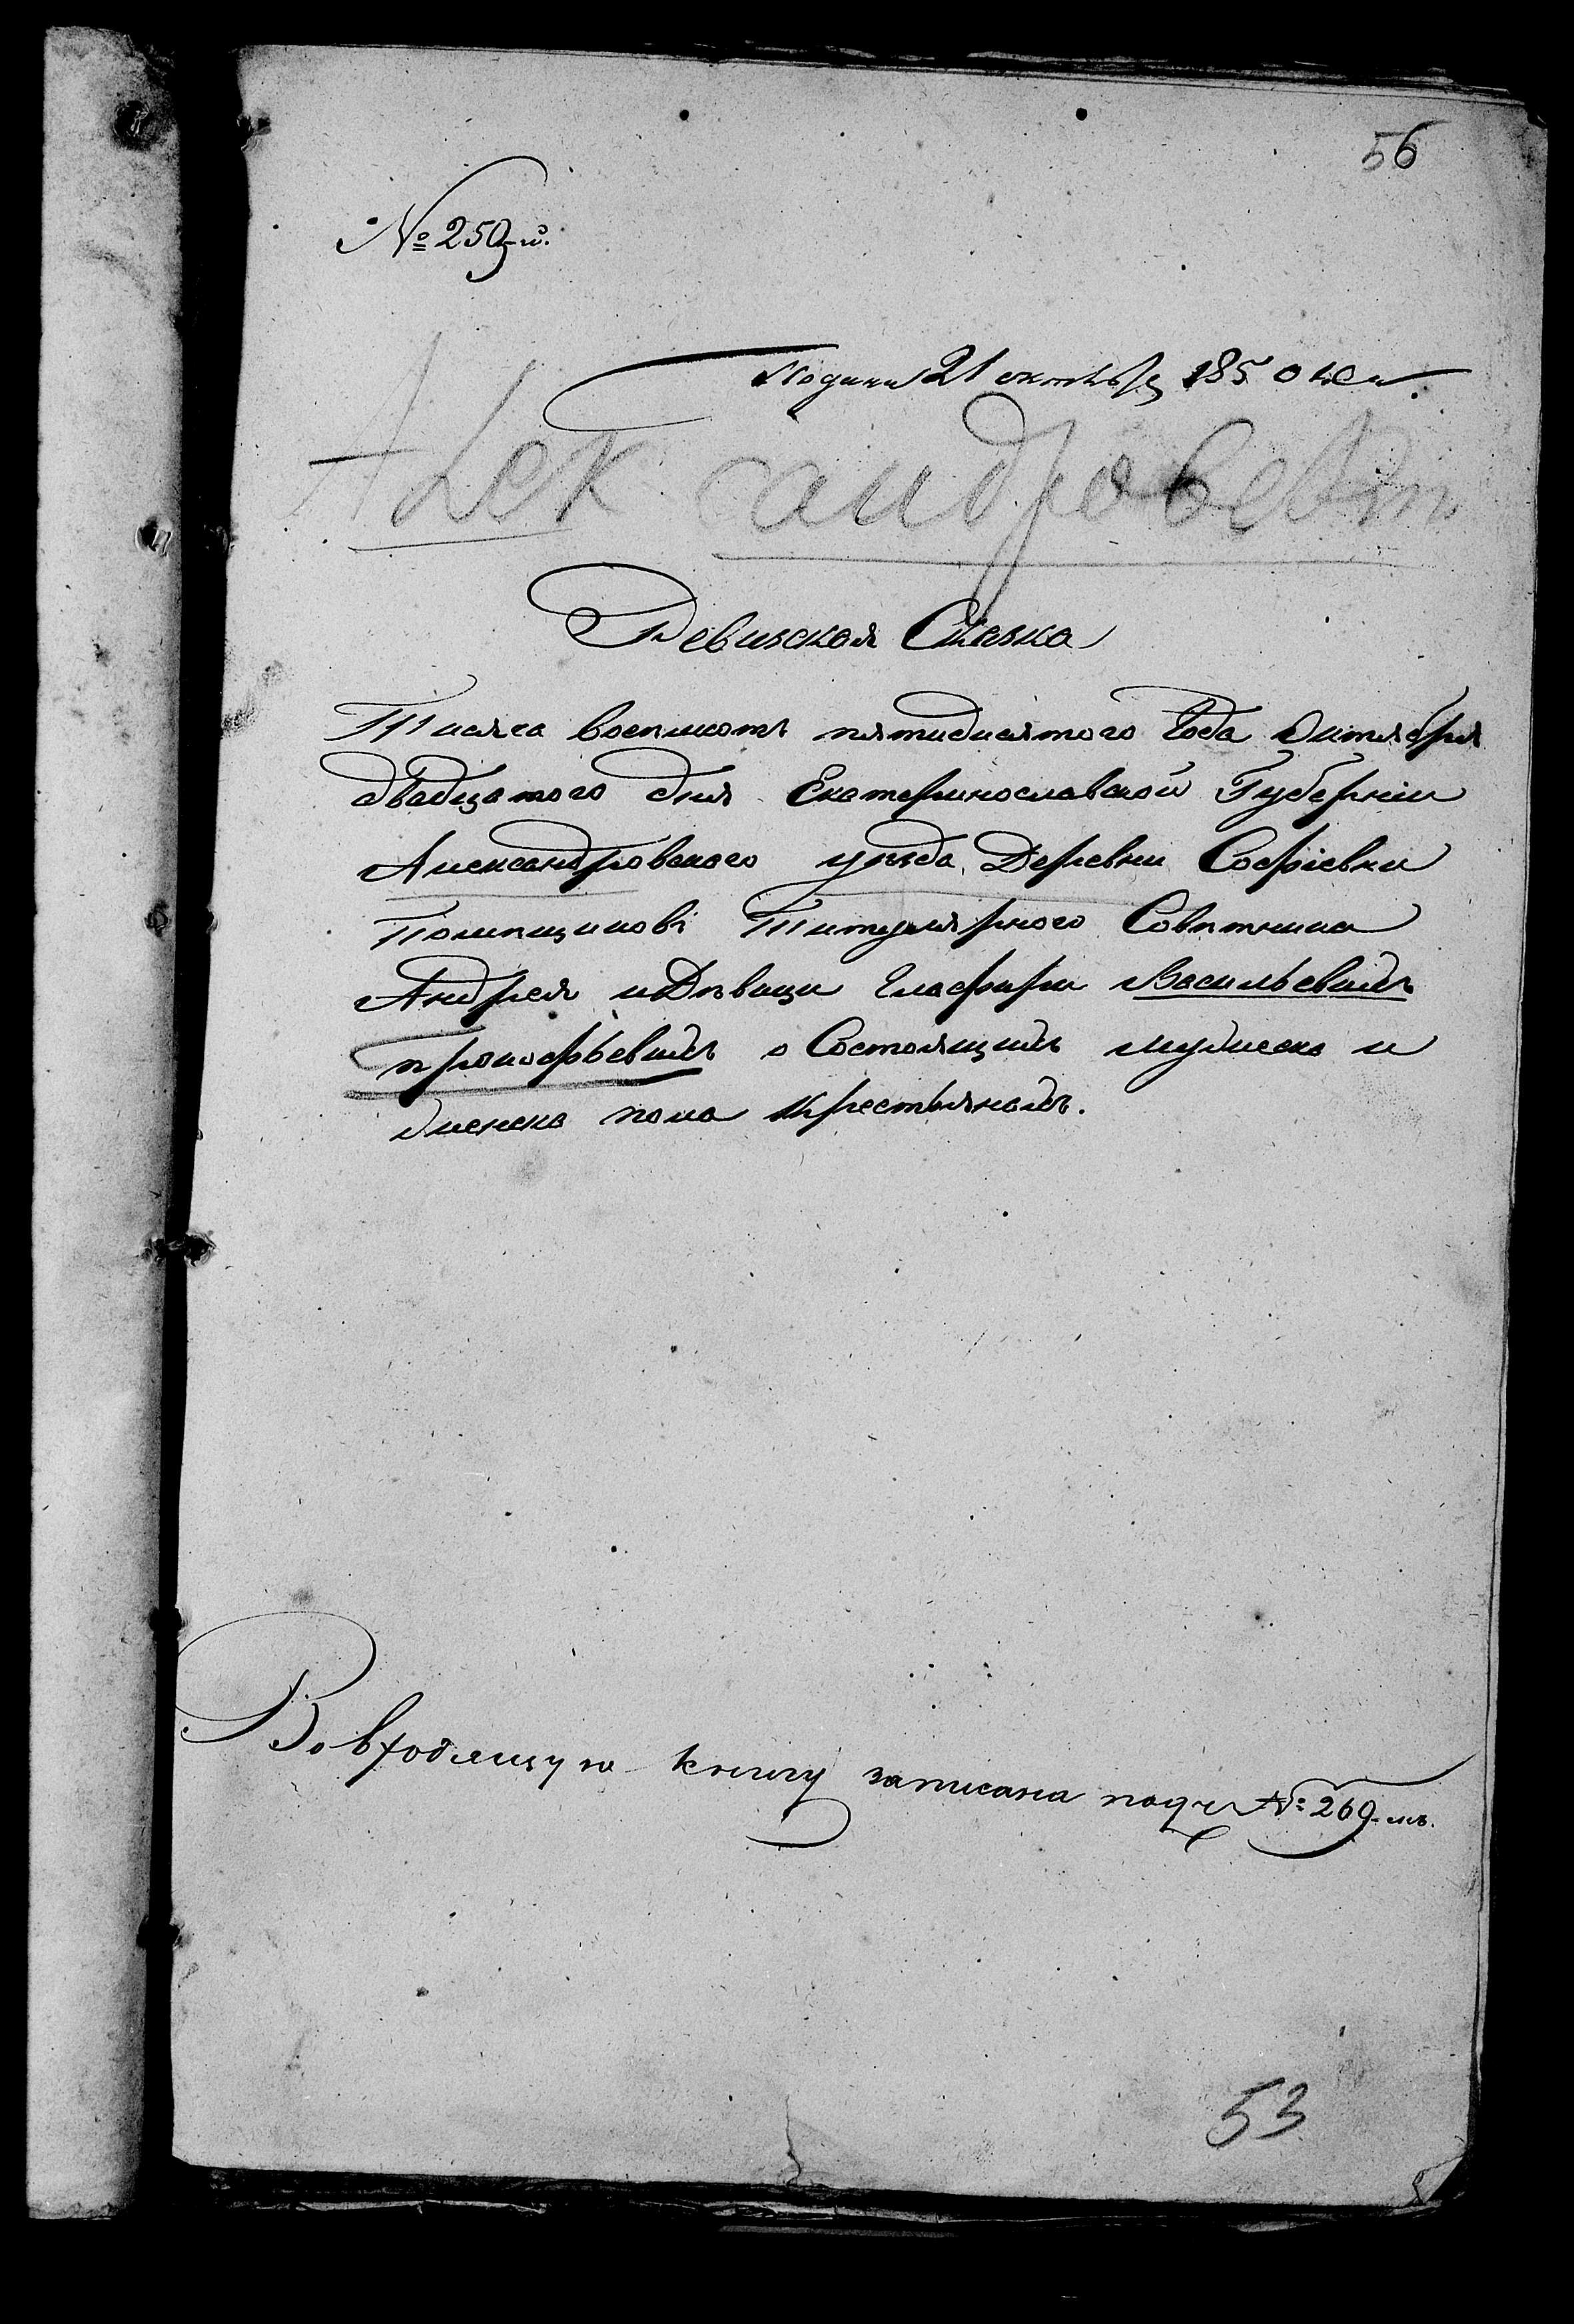 56
№ 259-й.
Подана 21 октября 1850 года.
Александровскт
Ревизская Сказка
Тысяча восемсотъ пятидесятого Года Октября
двадцатого дня Екатеринославской Губерніи
Александровского уѣзда, Деревни Софіевки
Помѣщиковъ Титулярного Совѣтника
Андрея и Дѣвицы Глафиры Васильевыхъ
прокофьевыхъ о Состоящихъ мужеска и
женска пола крестьянахъ.
Во входящую книгу записана подъ № 269-мъ.
53